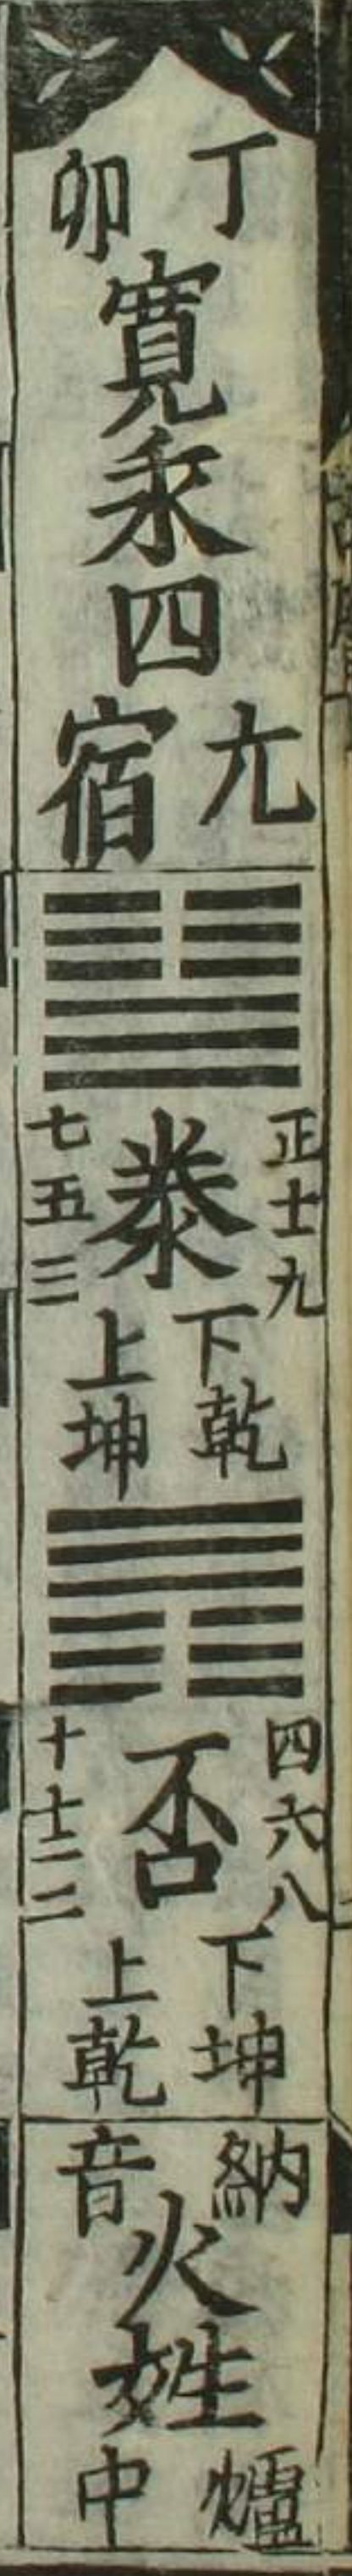 丁卯
寛永四
亢宿
泰
正十一九
七五三
下乾
上坤
否
四六八
十十二二
下坤
上乾
納音
火姓
爐中